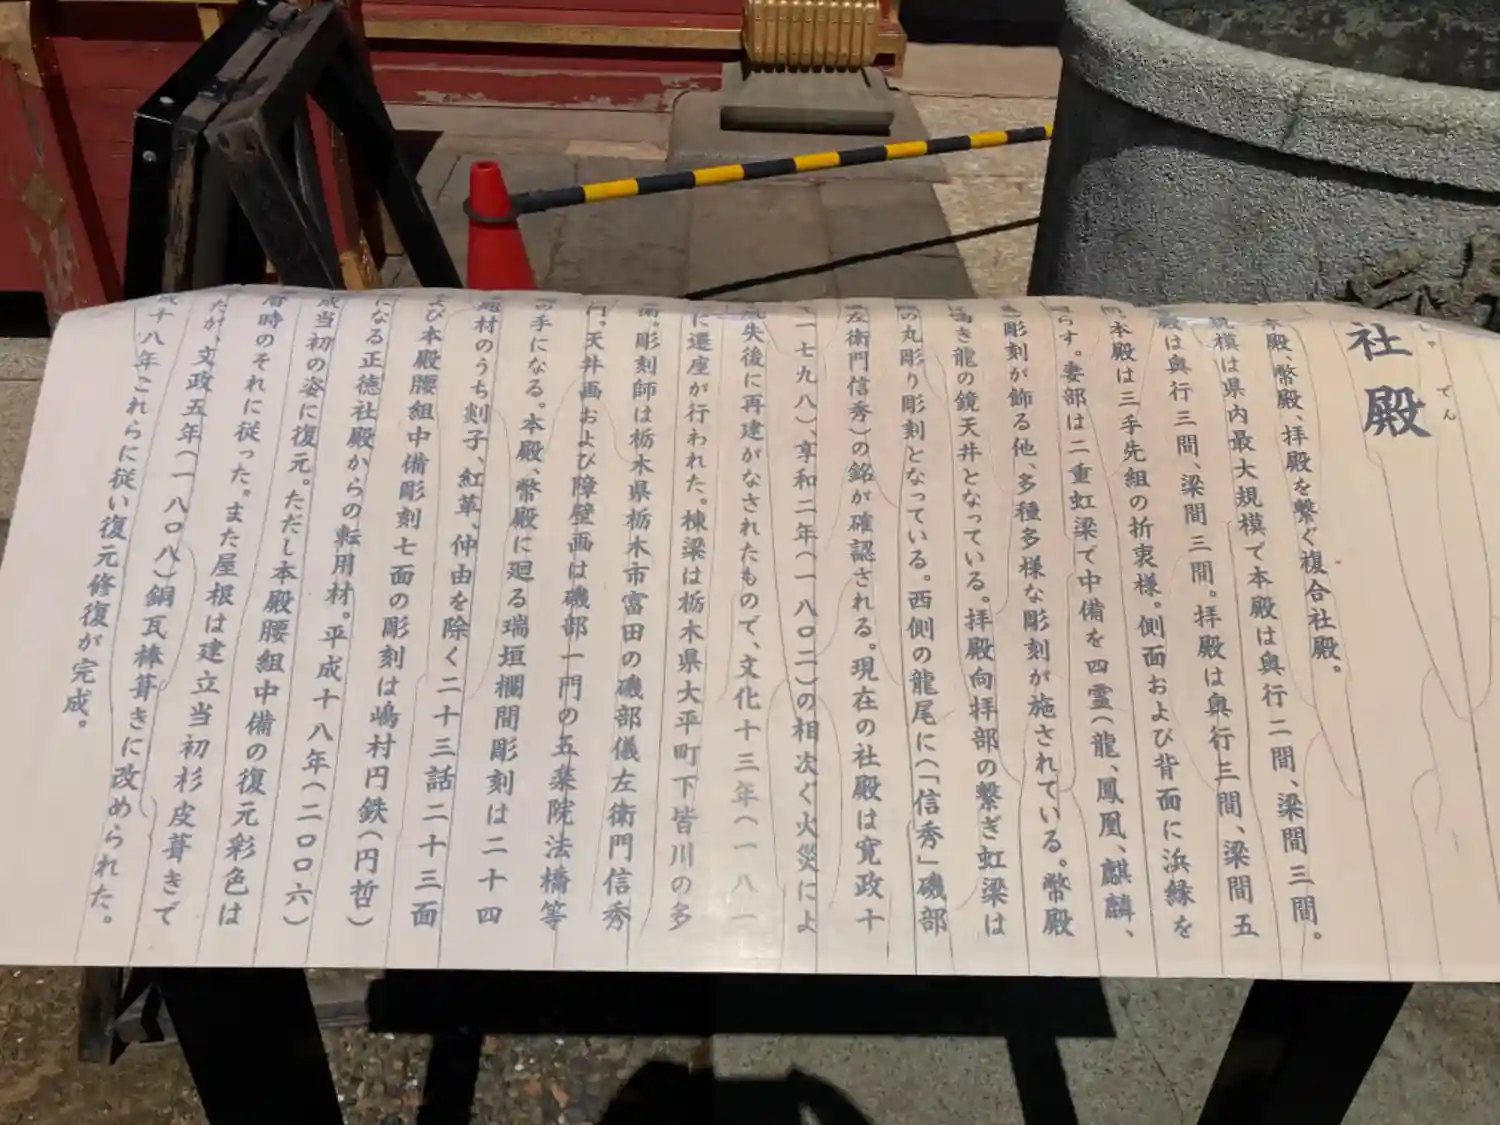 社殿
でん
殿、幣殿、拝殿を繋ぐ複合社殿。
規模は県内最大規模で本殿は奥行二間、梁間三間。
殿は奥行三間、梁間三間。拝殿は奥行三間、梁間五
本殿は三手先組の折衷様。側面および背面に浜縁を
らす。妻部は二重虹梁で中備を四霊(龍、鳳凰、麒麟、
彫刻が飾る他、多種多様な彫刻が施されている。幣殿
き龍の鏡天井となっている。拝殿向拝部の繋ぎ虹梁は
の丸彫り彫刻となっている。西側の龍尾に(「信秀」磯部
左衛門信秀)の銘が確認される。現在の社殿は寛政十
(一七九八)、享和二年(一八〇二)の相次ぐ火災によ
失後に再建がなされたもので、文化十三年(一八一
に遷座が行われた。棟梁は栃木県大平町下皆川の多
衛。彫刻師は栃木県栃木市富田の磯部儀左衛門信秀
門。天井画および障壁画は磯部一門の五楽院法橋等
の手になる。本殿、幣殿に廻る瑞垣欄間彫刻は二十四
題材のうち剡子、紅革、仲由を除く二十三話二十三面
よび本殿腰組中備彫刻七面の彫刻は嶋村円鉄(円哲)
になる正徳社殿からの転用材。平成十八年(二〇〇六)
成当初の姿に復元。ただし本殿腰組中備の復元彩色は
暦時のそれに従った。また屋根は建立当初杉皮葺きで
たが、文政五年(一八〇八)銅瓦棒葺きに改められた。
成十八年これらに従い復元修復が完成。